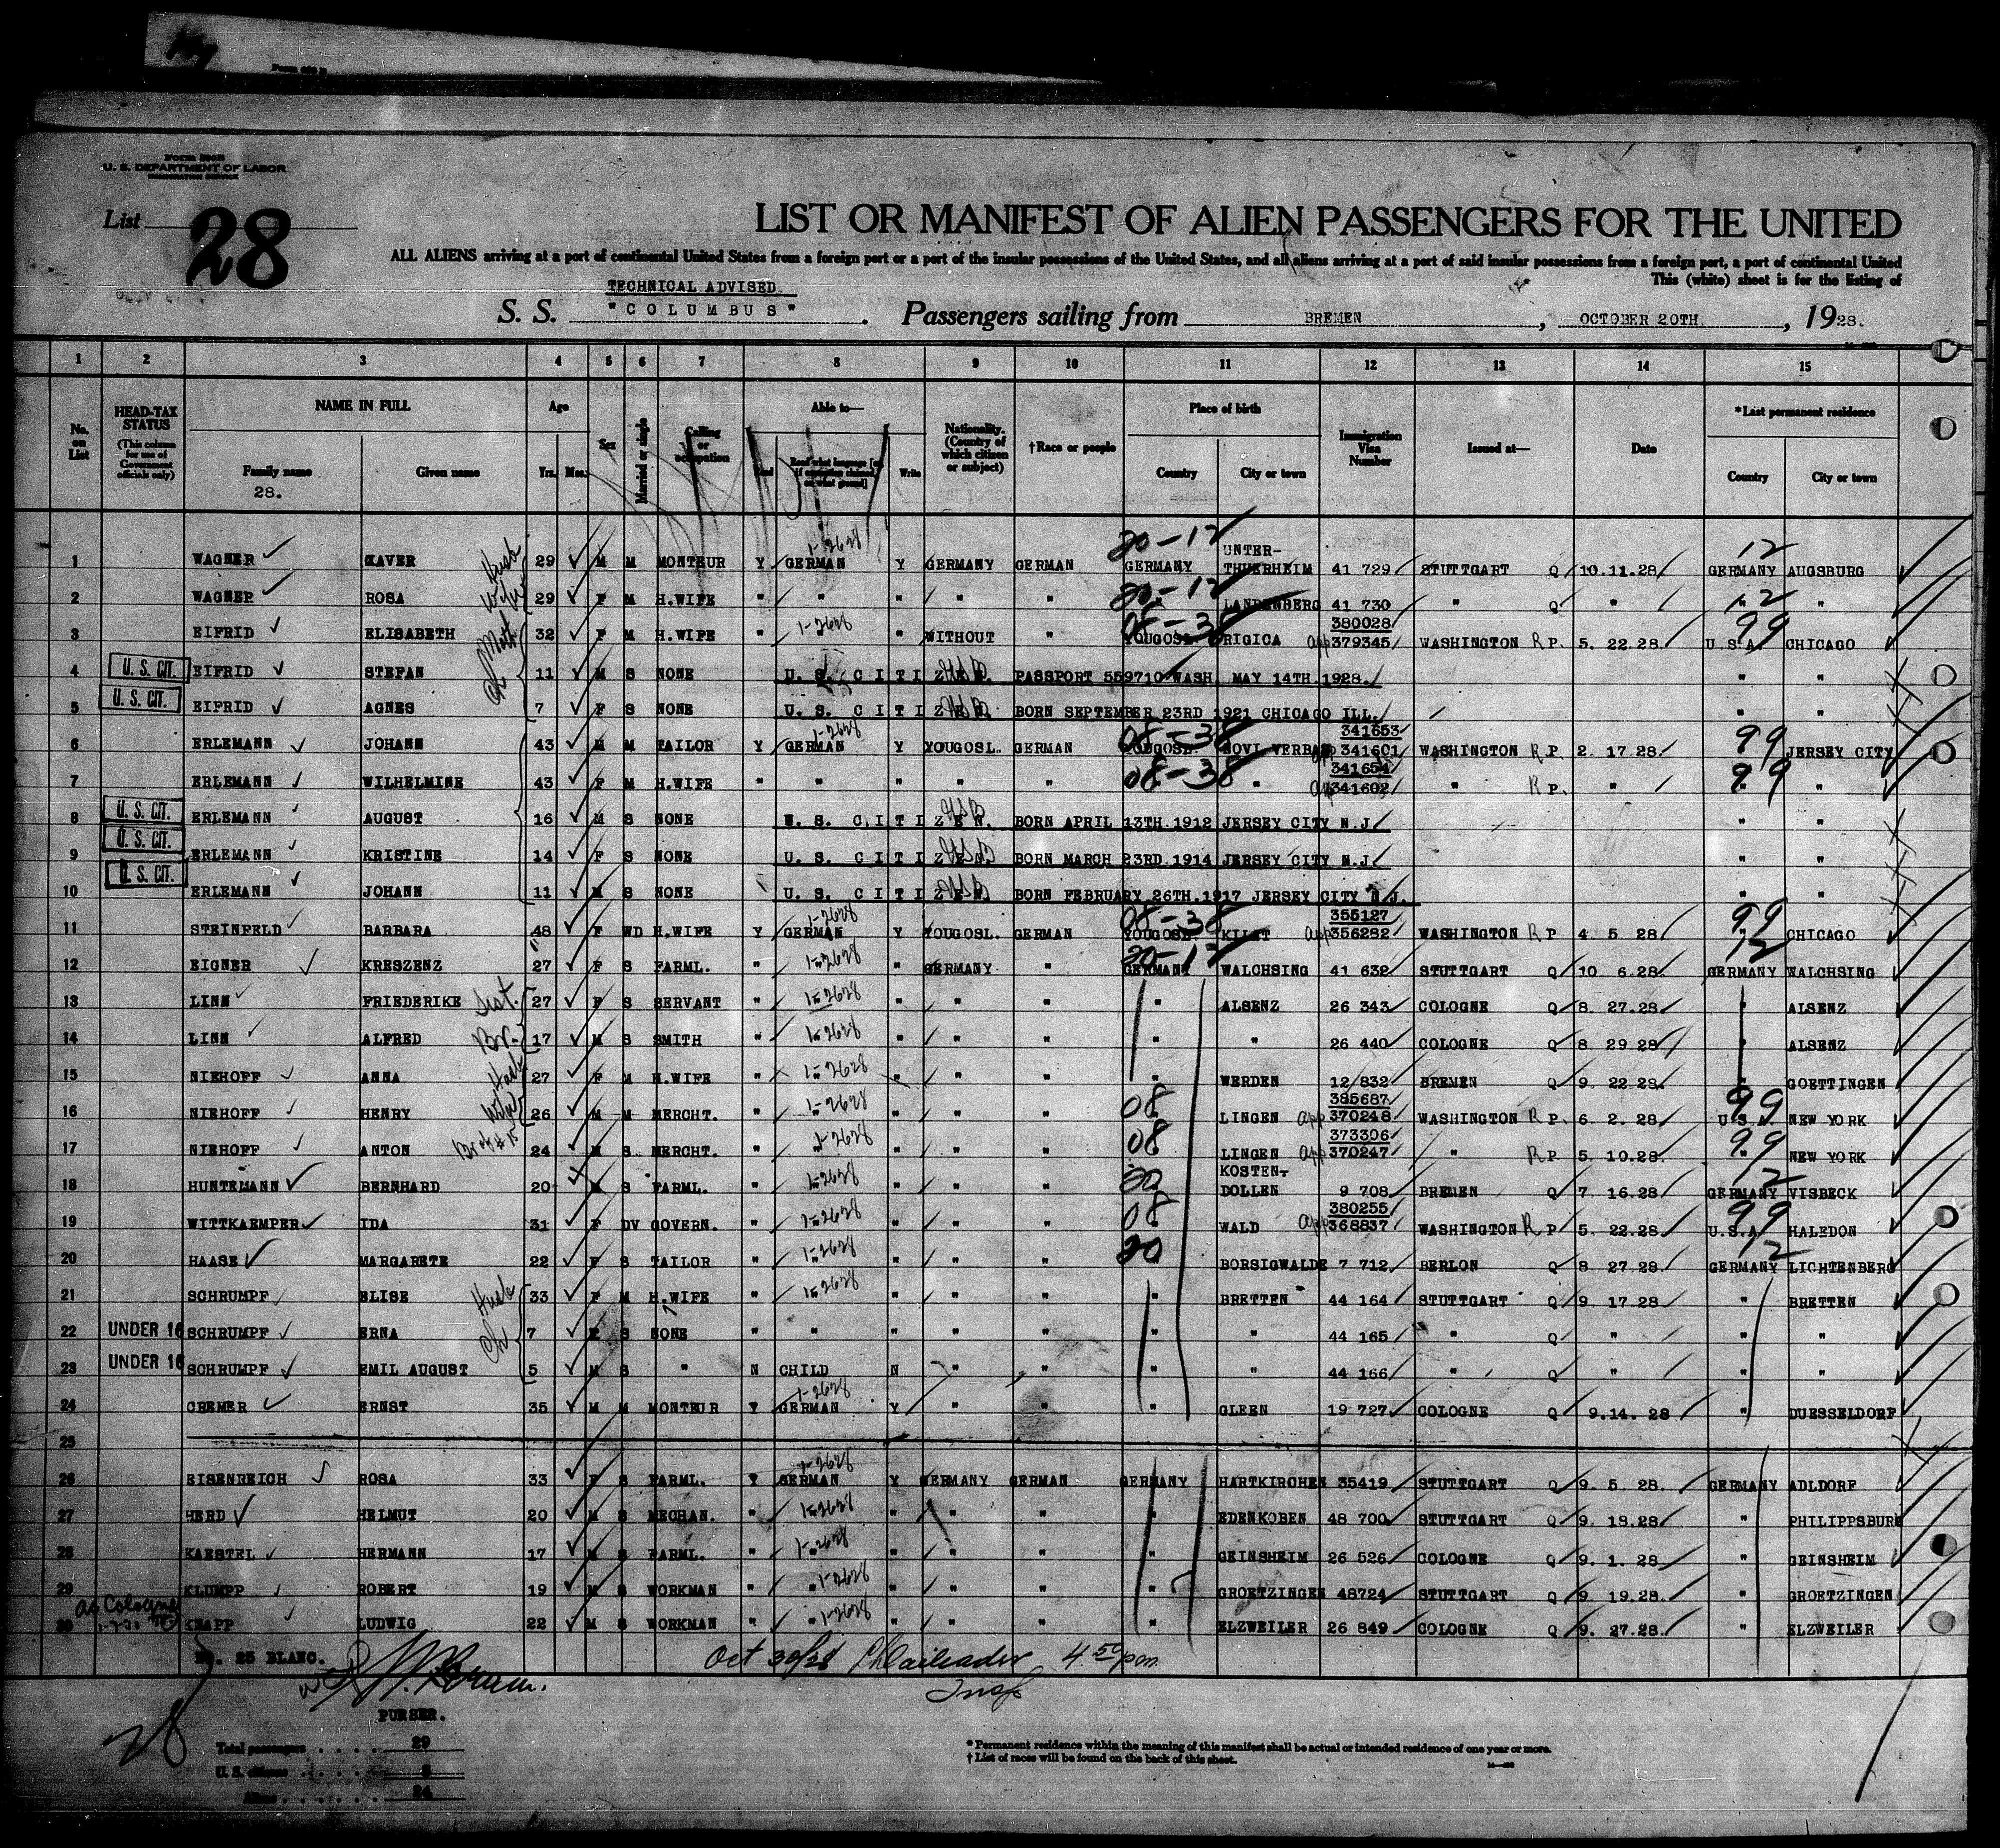 Form 500B
U. S. DEPARTMENT OF LABOR
IMMIGRATION SERVICE
List 28
LIST OR MANIFEST OF ALIEN PASSENGERS FOR THE UNITED
ALL ALIENS arriving at a port of continental United States from a foreign port or a port of the insular possessions of the United States, and all aliens arriving at a port of said insular possessions from a foreign port, a port of continental United
This (white) sheet is for the listing of
TECHNICAL ADVISED
S. S. "COLUMBUS". Passengers sailing from BREMEN, OCTOBER 20TH, 1928.
1 2 3 4 5 6 7 8 9 10 11 12 13 14 15
No. on List
HEAD-TAX STATUS (This column for use of Government officials only)
NAME IN FULL Family name Given name
28.
Age Yrs. Mos.
Sex
Married or single
Calling or occupation
Able to— Read Read what language [or if exemption claimed, on what ground] Write
Nationality. (Country of which citizen or subject)
†Race or people
Place of birth Country City or town
Immigration Visa Number
Issued at—
Date
*Last permanent residence Country City or town
1 WAGNER XAVER 29 M M MONTEUR Y GERMAN 1-2628 Y GERMANY GERMAN 20-12 GERMANY UNTER-THUERHEIM 41 729 STUTTGART Q 10.11.28 12 GERMANY AUGSBURG
2 WAGNER ROSA 29 F M H.WIFE " " " " " 20-12 LANDENBERG 41 730 " Q " 12 " "
3 EIFRID ELISABETH 32 F M H.WIFE " 1-2628 " WITHOUT " 08-38 YOUGOSL. RIGICA 380028 app 379345 WASHINGTON R P. 5. 22.28 99 U.S.A. CHICAGO
4 U. S. CIT. EIFRID STEFAN 11 M S NONE U. S. CITIZEN. PASSPORT 559710 WASH. MAY 14TH.1928. " "
5 U. S. CIT. EIFRID AGNES 7 F S NONE U. S. CITIZEN. BORN SEPTEMBER 23RD 1921 CHICAGO ILL. " "
6 ERLEMANN JOHANN 43 M M TAILOR Y GERMAN 1-2628 Y YOUGOSL. GERMAN 08-38 YOUGOSL. NOVI VERBAS 341653 app 341601 WASHINGTON R P. 2. 17.28 99 " JERSEY CITY
7 ERLEMANN WILHELMINE 43 F M H.WIFE " " " " " 08-38 " 341654 app 341602 " R P. " 99 " "
8 U. S. CIT. ERLEMANN AUGUST 16 M S NONE U. S. CITIZEN. BORN APRIL 13TH 1912 JERSEY CITY N.J. " "
9 U. S. CIT. ERLEMANN KRISTINE 14 F S NONE U. S. CITIZEN. BORN MARCH 23RD 1914 JERSEY CITY N.J. " "
10 U. S. CIT. ERLEMANN JOHANN 11 M S NONE U. S. CITIZEN. BORN FEBRUARY 26TH.1917 JERSEY CITY N.J. " "
11 STEINFELD BARBARA 48 F WD H.WIFE Y GERMAN 1-2628 Y YOUGOSL. GERMAN 08-38 YOUGOSL. 355127 app 356282 WASHINGTON R P 4 5 28 99 " CHICAGO
12 EIGNER KRESZENZ 27 F S FARML. " 1-2628 " GERMANY " 20-12 GERMANY WALCHSING 41 632 STUTTGART Q 10 6.28 12 GERMANY WALCHSING
13 LINN FRIEDERIKE Sist. 27 F S SERVANT " 1-2628 " " " " ALSENZ 26 343 COLOGNE Q 8. 27.28 " ALSENZ
14 LINN ALFRED Br. 17 M S SMITH " 1-2628 " " " " " 26 440 COLOGNE Q 8. 29 28 " ALSENZ
15 NIEHOFF ANNA Husb 27 F M H.WIFE " 1-2628 " " " " WERDEN 12 832 BREMEN Q 9. 22 28 " GOETTINGEN
16 NIEHOFF HENRY Wife 26 M M MERCHT. " 1-2628 " " " 08 LINGEN 385687 app 370248 WASHINGTON R P. 6 2. 28 99 U.S.A. NEW YORK
17 NIEHOFF ANTON Br of #15 24 M S MERCHT. " 1-2628 " " " 08 LINGEN 373306 app 370247 " R P 5. 10.28 99 " NEW YORK
18 HUNTEMANN BERNHARD 20 M S FARML. " 1-2628 " " " 20 KOSTEN-DOLLEN 9 708 BREMEN Q 7. 16.28 12 GERMANY VISBECK
19 WITTKAEMPER IDA 31 F DV GOVERN. " 1-2628 " " " 08 WALD 380255 app 368837 WASHINGTON R P 5. 22.28 99 U.S.A. HALEDON
20 HAASE MARGARETE 22 F S TAILOR " 1-2628 " " " 20 BORSIGWALDE 7 712 BERLON Q 8 27 28 12 GERMANY LICHTENBERG
21 SCHRUMPF ELISE Husb 33 F M H.WIFE " 1-2628 " " " " BRETTEN 44 164 STUTTGART Q 9. 17.28 " BRETTEN
22 UNDER 16 SCHRUMPF ERNA Ch 7 F S NONE " " " " " " " 44 165 " Q " " "
23 UNDER 16 SCHRUMPF EMIL AUGUST 5 M S " N CHILD N " " " " 44 166 " Q " " "
24 CREMER ERNST 35 M M MONTEUR Y GERMAN 1-2628 Y " " " GLEEN 19 727 COLOGNE Q 9.14. 28 " DUESSELDORF
25
26 EISENREICH ROSA 33 F S FARML. Y GERMAN 1-2628 Y GERMANY GERMAN GERMANY HARTKIRCHEN 35419 STUTTGART Q 9. 5 28. GERMANY ADLDORF
27 HERD HELMUT 20 M S MECHAN. " 1-2628 " " " " EDENKOBEN 48 700 STUTTGART Q 9. 18.28 " PHILIPPSBURG
28 KAESTEL HERMANN 17 M S FARML. " 1-2628 " " " " GEINSHEIM 26 526 COLOGNE Q 9. 1. 28 " GEINSHEIM
29 KLUMPP ROBERT 19 M S WORKMAN " 1-2628 " " " " GROETZINGEN 48724 STUTTGART Q 9 19.28 " GROETZINGEN
30 KNAPP LUDWIG 22 M S WORKMAN " 1-2628 " " " " ELZWEILER 26 849 COLOGNE Q 9. 27.28 " ELZWEILER
Cologne
No. 25 BLANC.
Oct 30/28 4 50 pm
Insp
PURSER.
28
Total passengers . . . . . 29
U. S. citizens . . . . . 5
Aliens . . . . . 24
* Permanent residence within the meaning of this manifest shall be actual or intended residence of one year or more.
† List of races will be found on the back of this sheet.